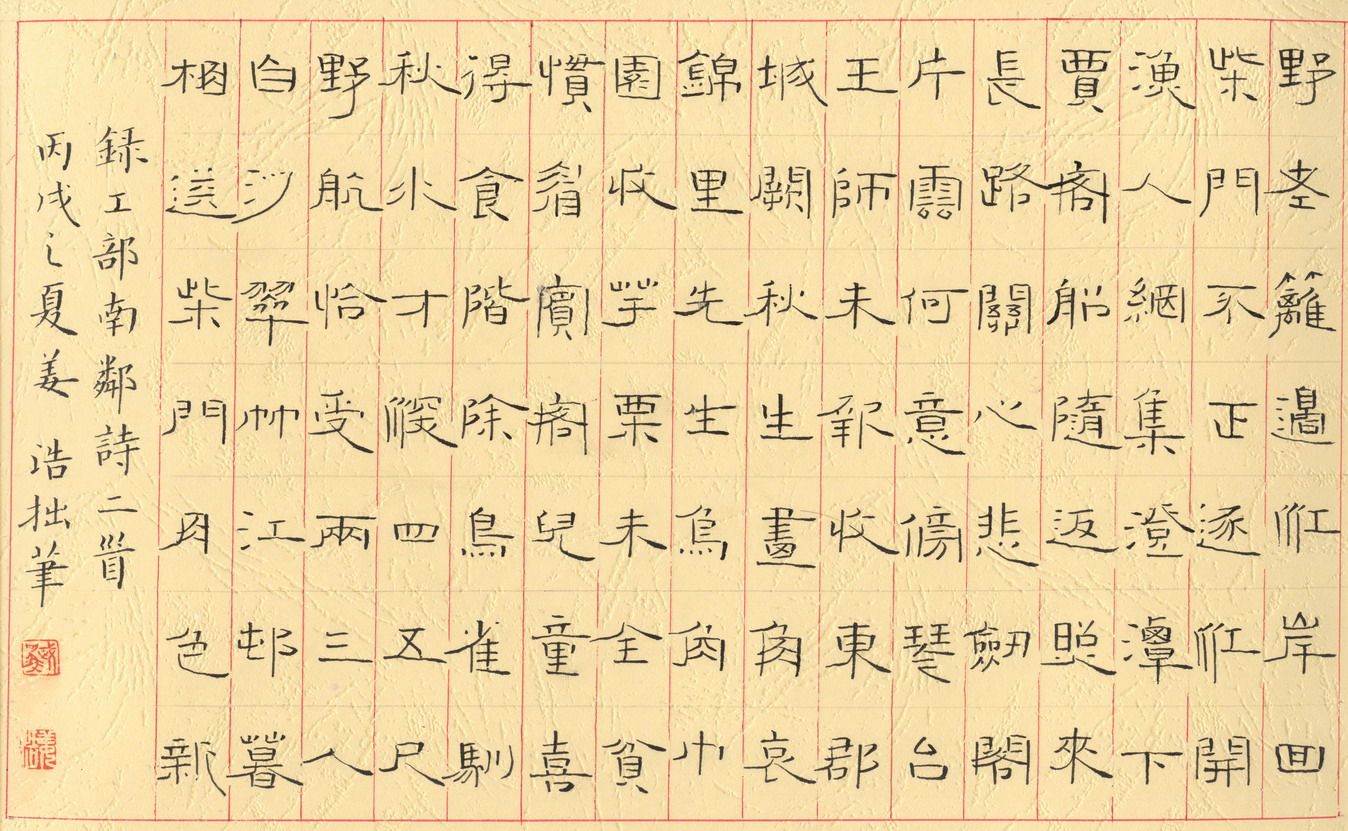 野老籬邊江岸回
柴門不正逐江開
漁人網集澄潭下
賈客船隨返照來
長路關心悲劍閣
片雲何意傍琴台
王師未報收東郡
城闕秋生畫角哀
錦里先生烏角巾
園收芋栗未全貧
慣看賓客兒童喜
得食階除鳥雀馴
秋水才深四五尺
野航恰受兩三人
白沙翠竹江邨暮
相送柴門月色新
録工部南鄰詩二首
丙戌之夏姜 浩拙筆